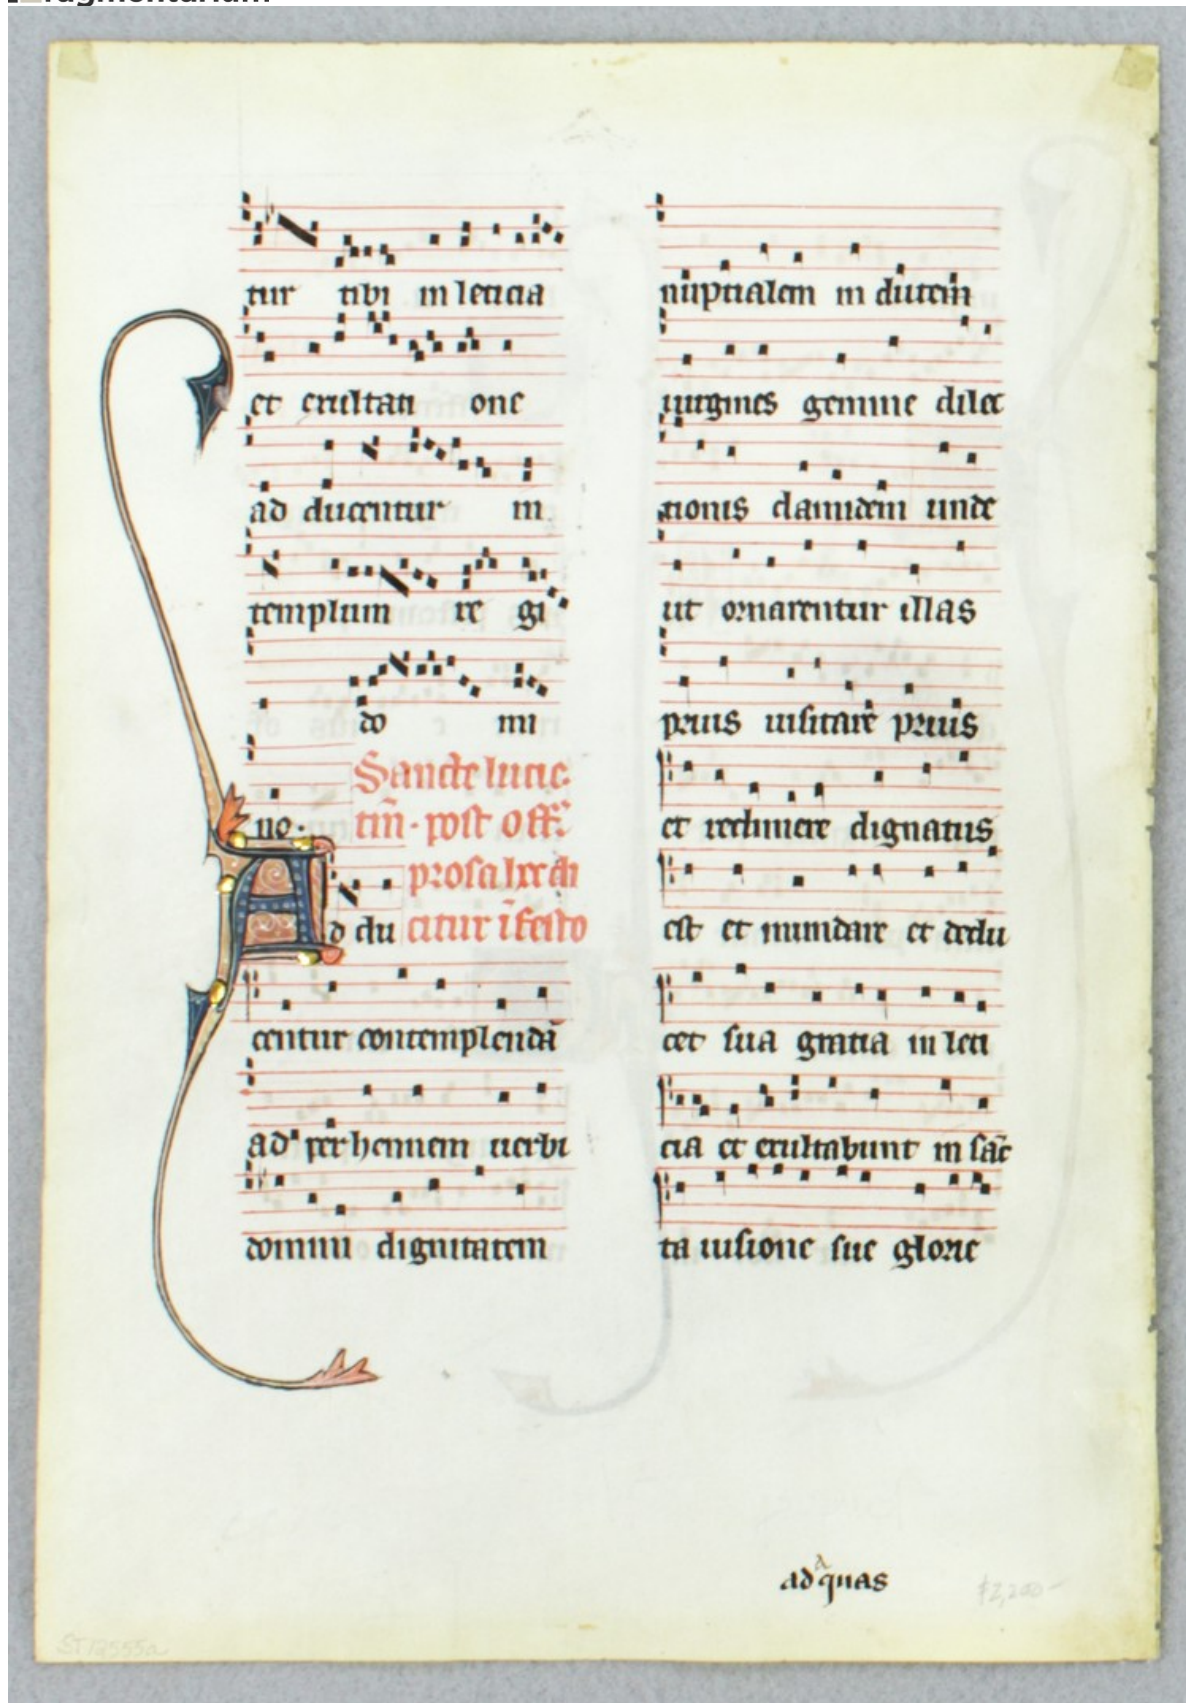 tur tibi in leticia
et exultati one
ad ducentur in
templum re gi
do mi
no.
Sancte lucie.
tm̄. post off.
prosa hec di
citur ī festo
Ad du
centur contemplendā
ad perhennem uerbi
domini dignitatem
nuptialem in
uirgines gemine dilec
tionis unde
ut ornarentur illas
prius uisitare prius
et redimere dignatus
est et mundare et dedu
cet sua gratia in leti
cia et exultabunt in sāc
ta uisione sue glorie
ad quas
$2,200-